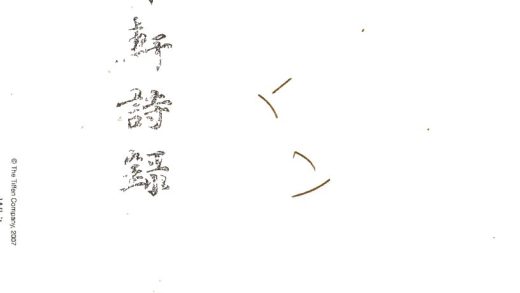 軒
詩
錄
© The Tiffen Company, 2007